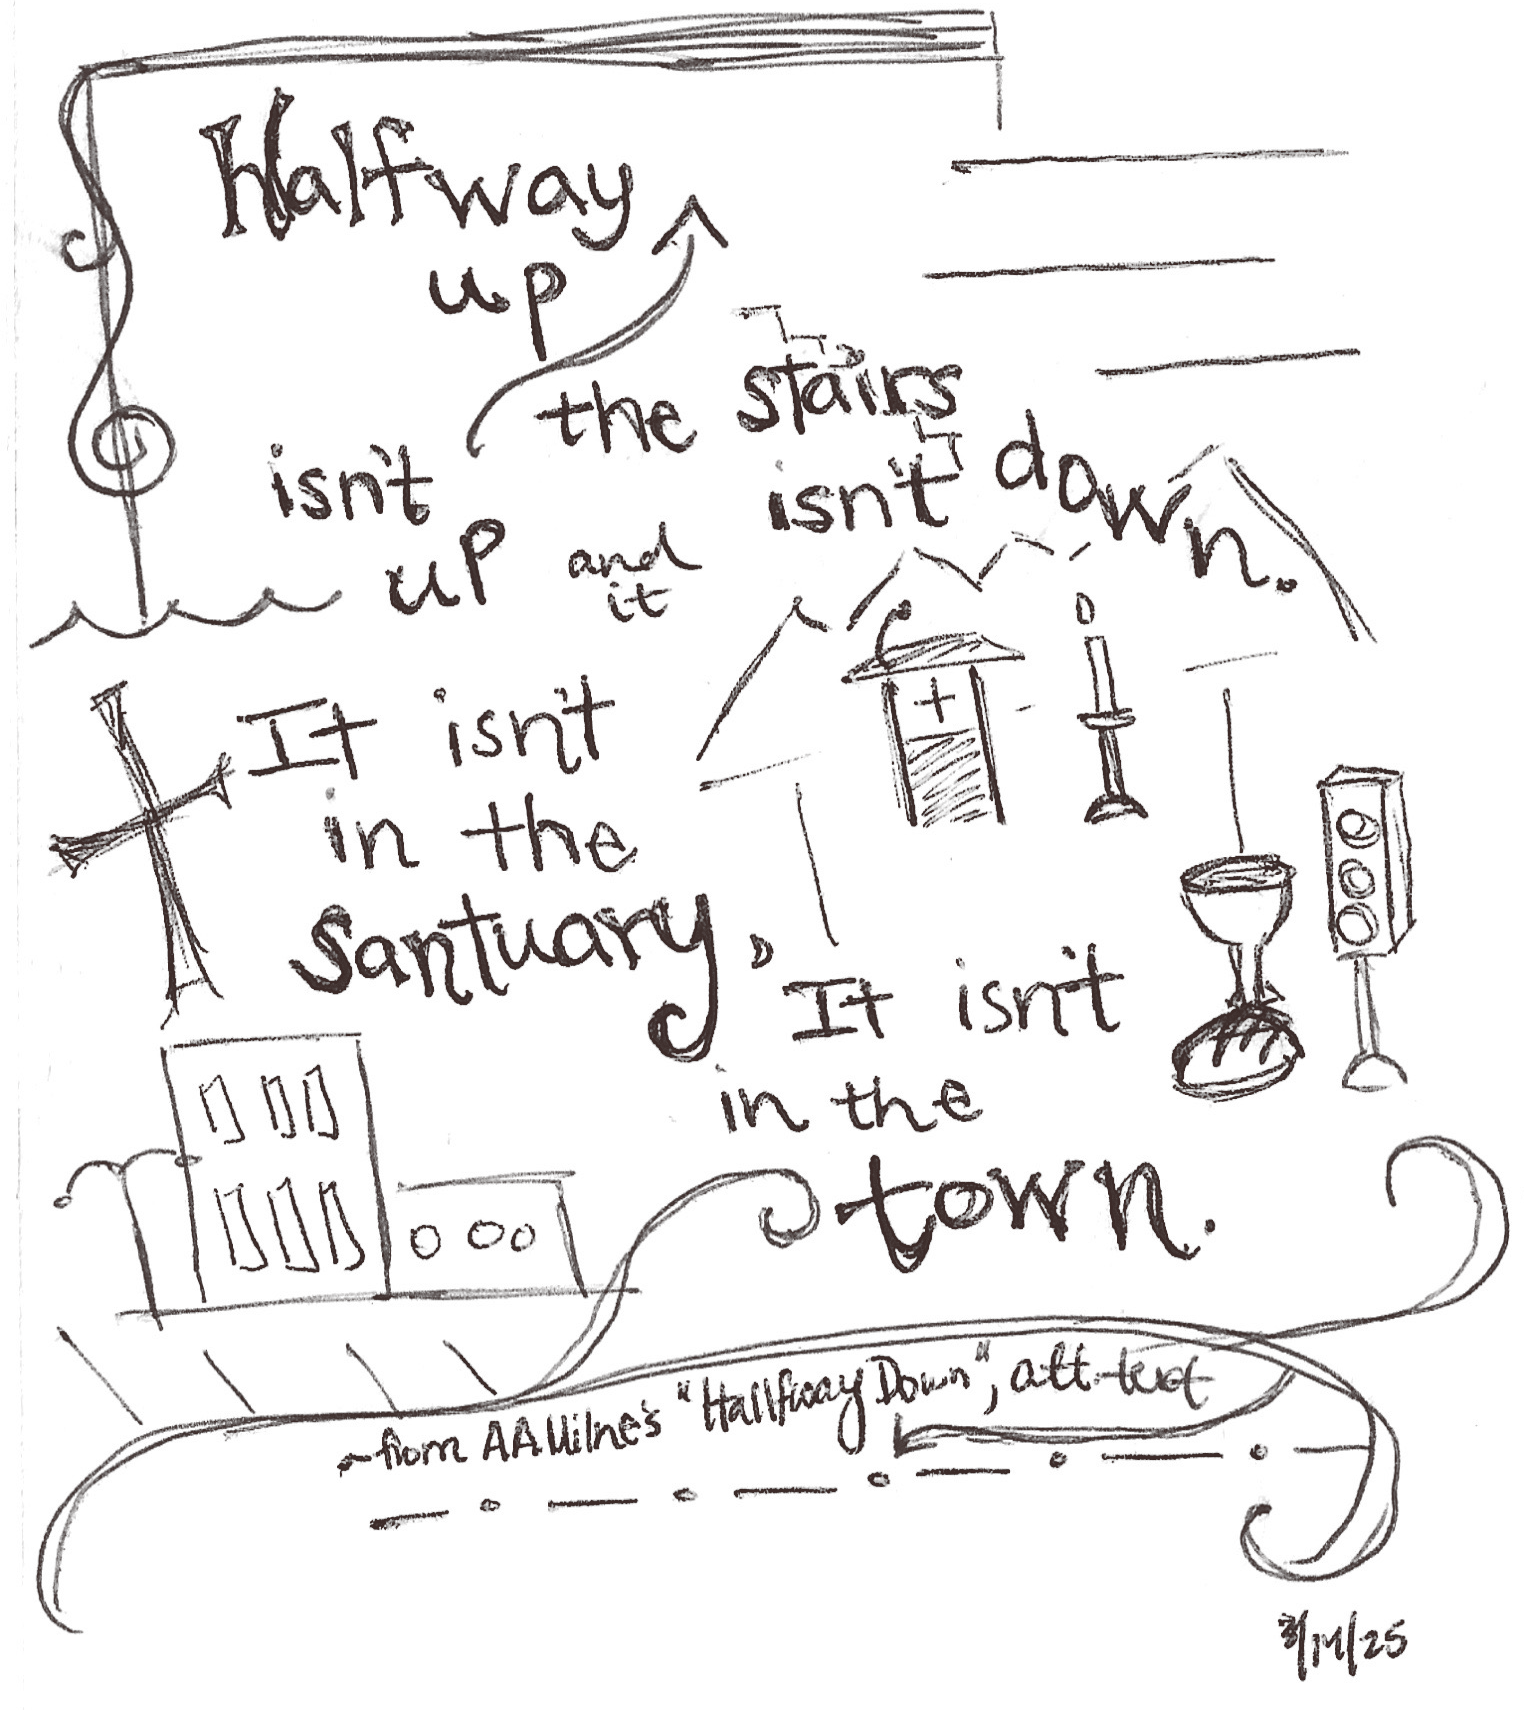 Halfway
up
the stairs
isn't
up and
it
isn't down.
It isn't
in the
Santuary,
It isn't
in the
town.
~from A.A. Milne's "Hallfway Down", alt text
3/14/25